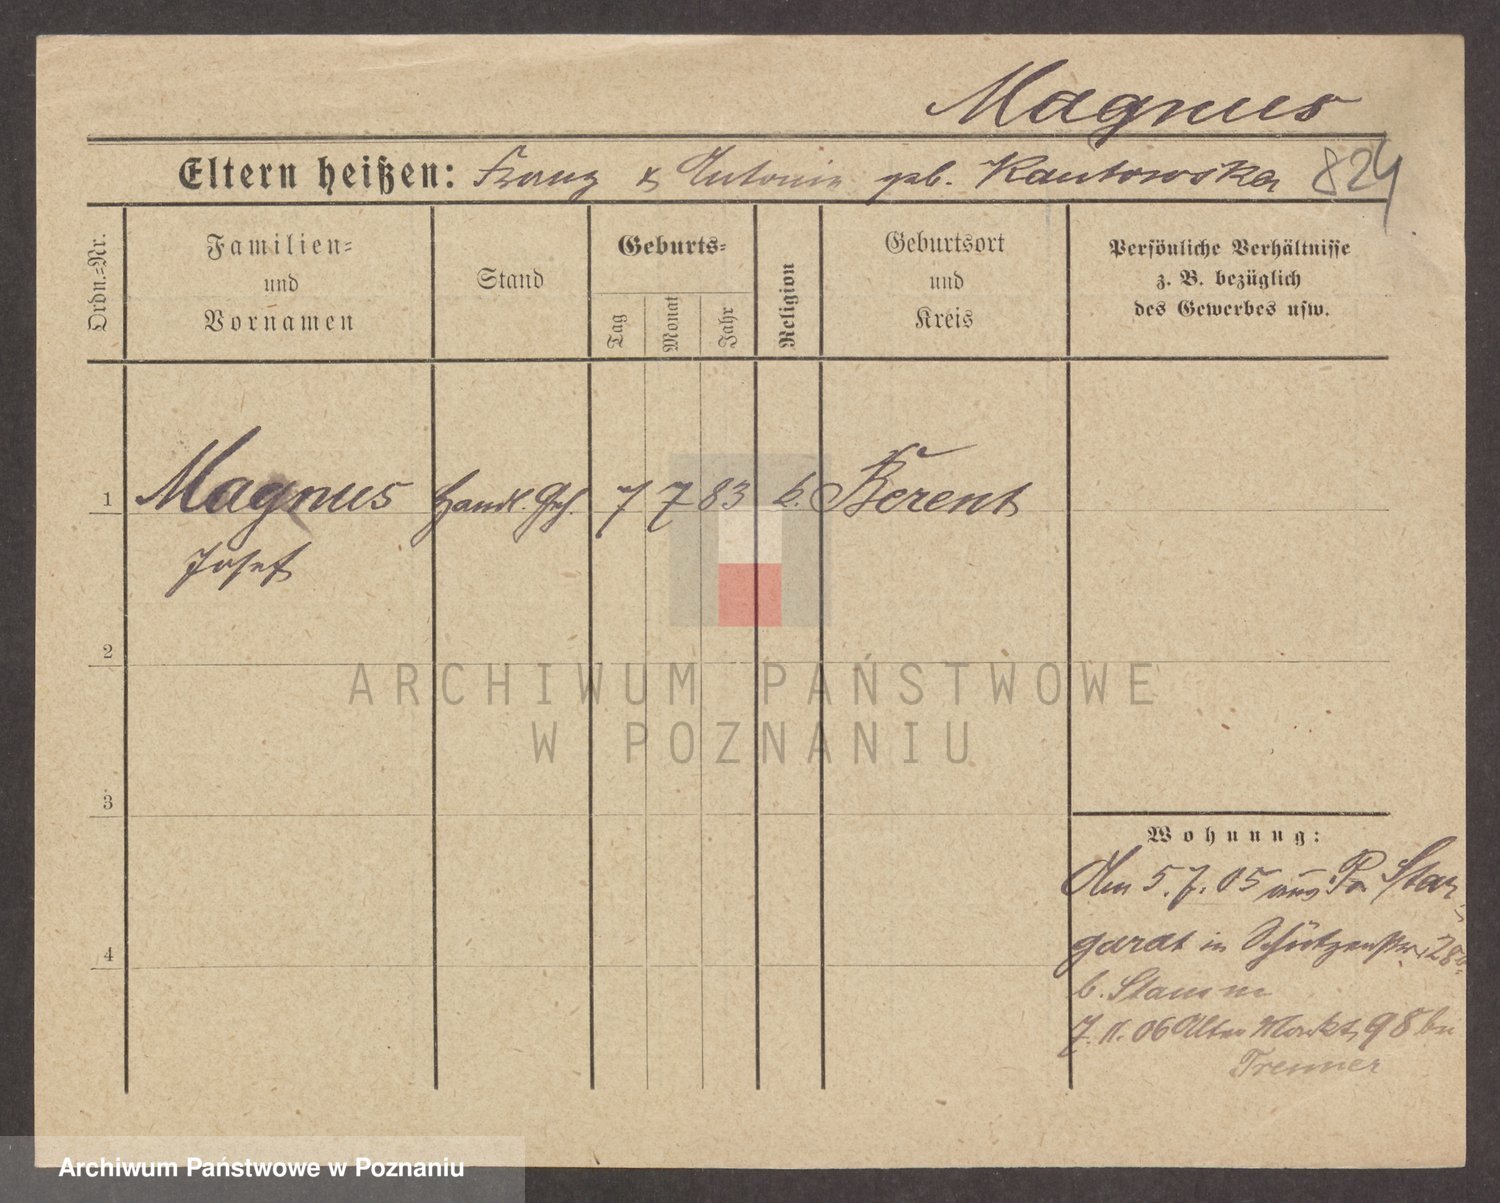 Magnus
Eltern heißen: Franz & Antonie geb. Kantowska 824
Ordn.=Nr.
Familien=
und
Vornamen
Stand
Geburts=
Tag
Monat
Jahr
Religion
Geburtsort
und
Kreis
Persönliche Verhältnisse
z. B. bezüglich
des Gewerbes usw.
1 Magnus Handl. Geh. 7 7 83 k. Berent
Josef
2
3
4
Wohnung:
Am 5.7.05 aus Pr. Star-
gardt in Schützenstr. 28a
b. Stamm
7.11.06 Alter Markt 98 bei
Trenner
ARCHIWUM PAŃSTWOWE
W POZNANIU
Archiwum Państwowe w Poznaniu